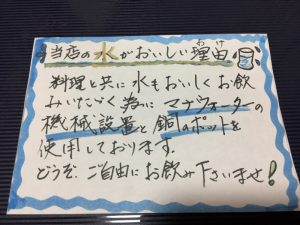 当店の水がおいしい理由
わけ
料理と共に水もおいしくお飲
みいただく為に マナウォーターの
機械設置と銅のポットを
使用しております。
どうぞご自由にお飲み下さいませ!